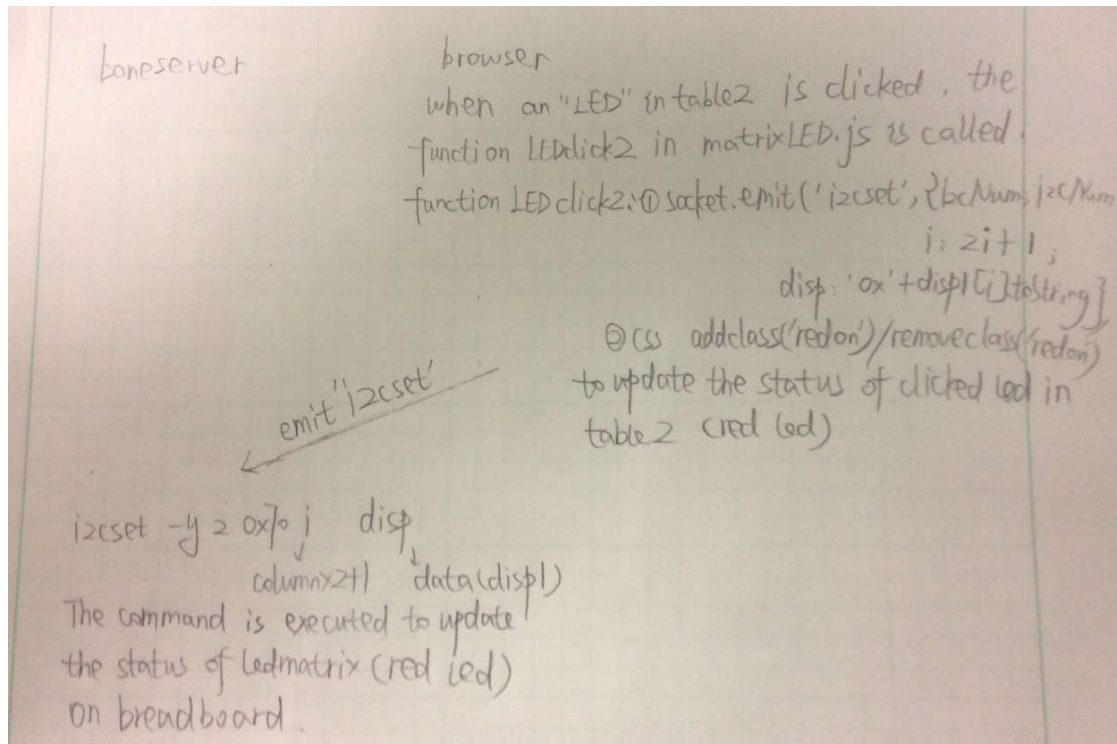 boneserver
browser
when an "LED" in table2 is clicked, the
function LEDclick2 in matrixLED.js is called.
function LEDclick2: ① socket.emit('i2cset', {i2cNum: i2cNum
i: 2i+1;
disp: '0x'+disp1[i].toString}
② css addclass('redon')/removeclass('redon')
to update the status of clicked led in
table2 (red led)
emit 'i2cset'
i2cset -y 2 0x70 i disp
column×2+1 data(disp1)
The command is executed to update
the status of Ledmatrix (red led)
on breadboard.